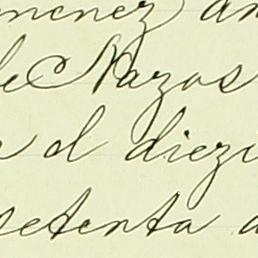 menez an
de Nazos
a d diezi
setenta a